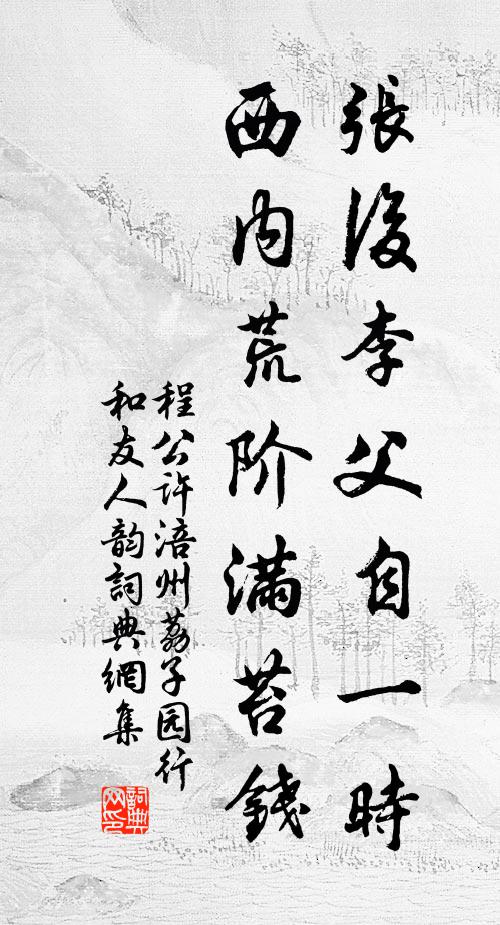 張後李父自一時
西内荒阶滿苔錢
程公许涪州荔子园行
和友人韵詞典網集